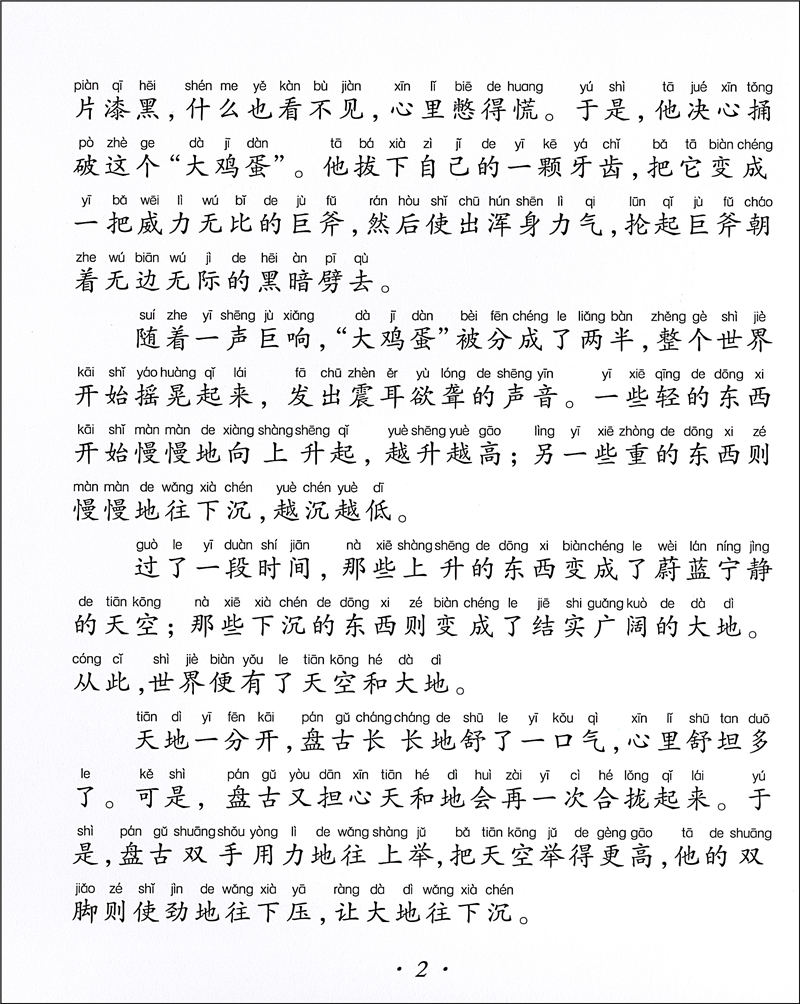 piàn qī hēi shén me yě kàn bù jiàn xīn lǐ biē de huang yú shì tā jué xīn tǒng
片漆黑，什么也看不见，心里憋得慌。于是，他决心捅
pò zhè ge dà jī dàn tā bá xià zì jǐ de yī kē yá chǐ bǎ tā biàn chéng
破这个“大鸡蛋”。他拔下自己的一颗牙齿，把它变成
yī bǎ wēi lì wú bǐ de jù fǔ rán hòu shǐ chū hún shēn lì qi lūn qǐ jù fǔ cháo
一把威力无比的巨斧，然后使出浑身力气，抡起巨斧朝
zhe wú biān wú jì de hēi àn pī qù
着无边无际的黑暗劈去。
suí zhe yī shēng jù xiǎng dà jī dàn bèi fēn chéng le liǎng bàn zhěng gè shì jiè
随着一声巨响，“大鸡蛋”被分成了两半，整个世界
kāi shǐ yáo huàng qǐ lái fā chū zhèn ěr yù lóng de shēng yīn yī xiē qīng de dōng xi
开始摇晃起来，发出震耳欲聋的声音。一些轻的东西
kāi shǐ màn màn de xiàng shàng shēng qǐ yuè shēng yuè gāo lìng yī xiē zhòng de dōng xi zé
开始慢慢地向上升起，越升越高；另一些重的东西则
màn màn de wǎng xià chén yuè chén yuè dī
慢慢地往下沉，越沉越低。
guò le yī duàn shí jiān nà xiē shàng shēng de dōng xi biàn chéng le wèi lán níng jìng
过了一段时间，那些上升的东西变成了蔚蓝宁静
de tiān kōng nà xiē xià chén de dōng xi zé biàn chéng le jiē shi guǎng kuò de dà dì
的天空；那些下沉的东西则变成了结实广阔的大地。
cóng cǐ shì jiè biàn yǒu le tiān kōng hé dà dì
从此，世界便有了天空和大地。
tiān dì yī fēn kāi pán gǔ cháng cháng de shū le yī kǒu qì xīn lǐ shū tan duō
天地一分开，盘古长长地舒了一口气，心里舒坦多
le kě shì pán gǔ yòu dān xīn tiān hé dì huì zài yī cì hé lǒng qǐ lái yú
了。可是，盘古又担心天和地会再一次合拢起来。于
shì pán gǔ shuāng shǒu yòng lì de wǎng shàng jǔ bǎ tiān kōng jǔ de gèng gāo tā de shuāng
是，盘古双手用力地往上举，把天空举得更高，他的双
jiǎo zé shǐ jìn de wǎng xià yā ràng dà dì wǎng xià chén
脚则使劲地往下压，让大地往下沉。
· 2 ·